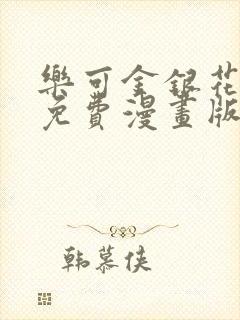 樂可金銀花
免費漫畫版
韩慕侠